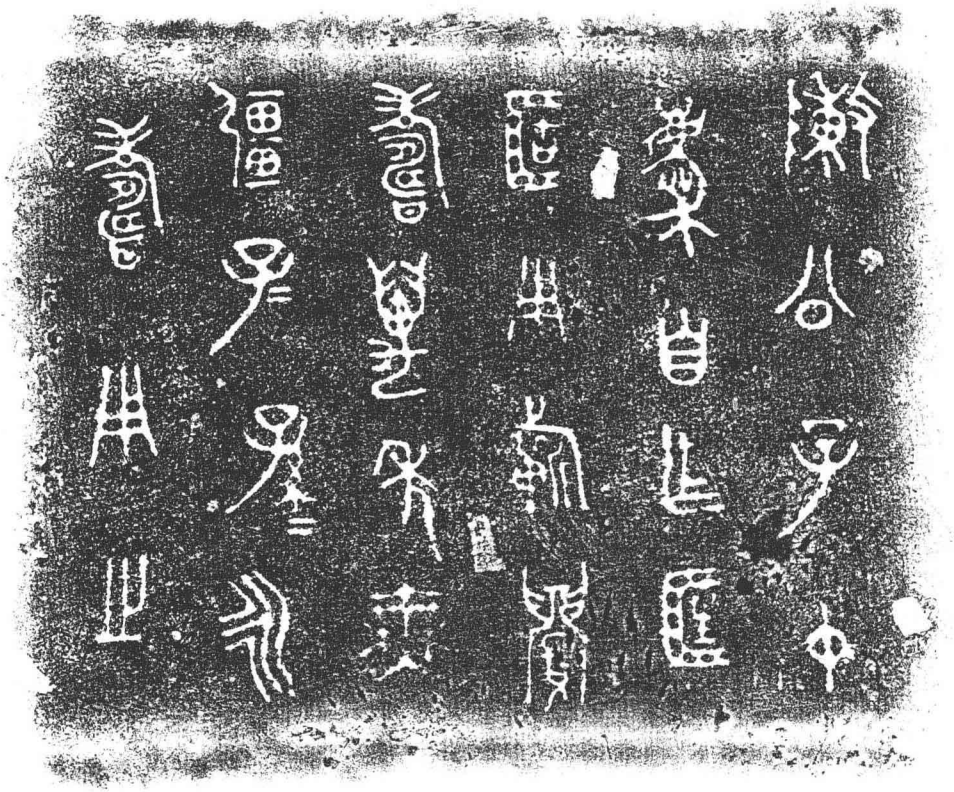 敶公子中
慶自乍匡
簠用祈眉
壽萬年無
彊子=孫=永
壽用之